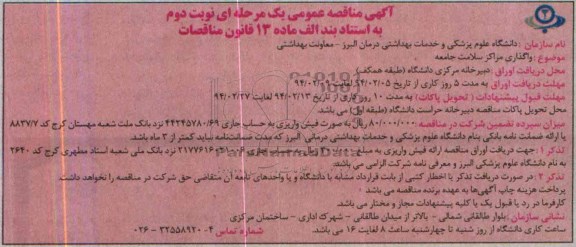 آگهی مناقصه عمومی یک مرحله ای نوبت دوم
به استناد بند الف ماده ۱۳ قانون مناقصات
نام سازمان : دانشگاه علوم پزشکی و خدمات بهداشتی درمان البرز - معاونت بهداشتی
موضوع : واگذاری مراکز سلامت جامعه
محل دریافت اوراق : دبیرخانه مرکزی دانشگاه (طبقه همکف)
مهلت دریافت اوراق به مدت ۵ روز کاری از تاریخ ۹۴/۰۲/۰۵ لغایت ۹۴/۰۲/۰۹
مهلت قبول پیشنهادات ( تحویل پاکات) به مدت ۱۰ روز کاری از تاریخ ۹۴/۰۲/۱۳ لغایت ۹۴/۰۲/۲۷
محل تحویل پاکات مناقصه دبیرخانه حراست دانشگاه (طبقه اول) می باشد
میزان سپرده تضمین شرکت در مناقصه : ۸۰/۰۰۰/۰۰۰ ریال به صورت فیش واریزی به حساب جاری ۴۴۲۴۵۷۸۰/۶۹ نزد بانک ملت شعبه مهستان کرج کد ۸۸۳۷/۷
یا ارائه ضمانت نامه بانکی بنام دانشگاه علوم پزشکی و خدمات بهداشتی درمانی البرز که مدت ضمانتنامه نباید کمتر از ۳ ماه باشد
تذکر ۱ : جهت دریافت اوراق مناقصه ارائه فیش واریزی به مبلغ ریال به حساب جاری نزد بانک ملی شعبه استاد مطهری کرج کد ۲۶۴۰
به نام دانشگاه علوم پزشکی البرز و معرفی نامه شرکت الزامی می باشد
تذکر ۲ : در صورت دریافت تذکر یا اخطار کتبی از بابت قرارداد مشابه با دانشگاه و یا واحدهای تابعه آن متقاضی حق شرکت در مناقصه را نخواهد داشت.
پرداخت هزینه چاپ آگهی‌ها به عهده برنده مناقصه می باشد
کارفرما در رد یا قبول یک یا کلیه پیشنهادات مجاز و مختار می باشد
نشانی سازمان : بلوار طالقانی شمالی - بالاتر از میدان طالقانی - شهرک اداری - ساختمان مرکزی
ساعت کاری دانشگاه از روز شنبه تا چهارشنبه ساعت ۸ لغایت ۱۶ می باشد. شماره تماس ۴-۳۲۵۵۸۹۲۰ - ۰۲۶